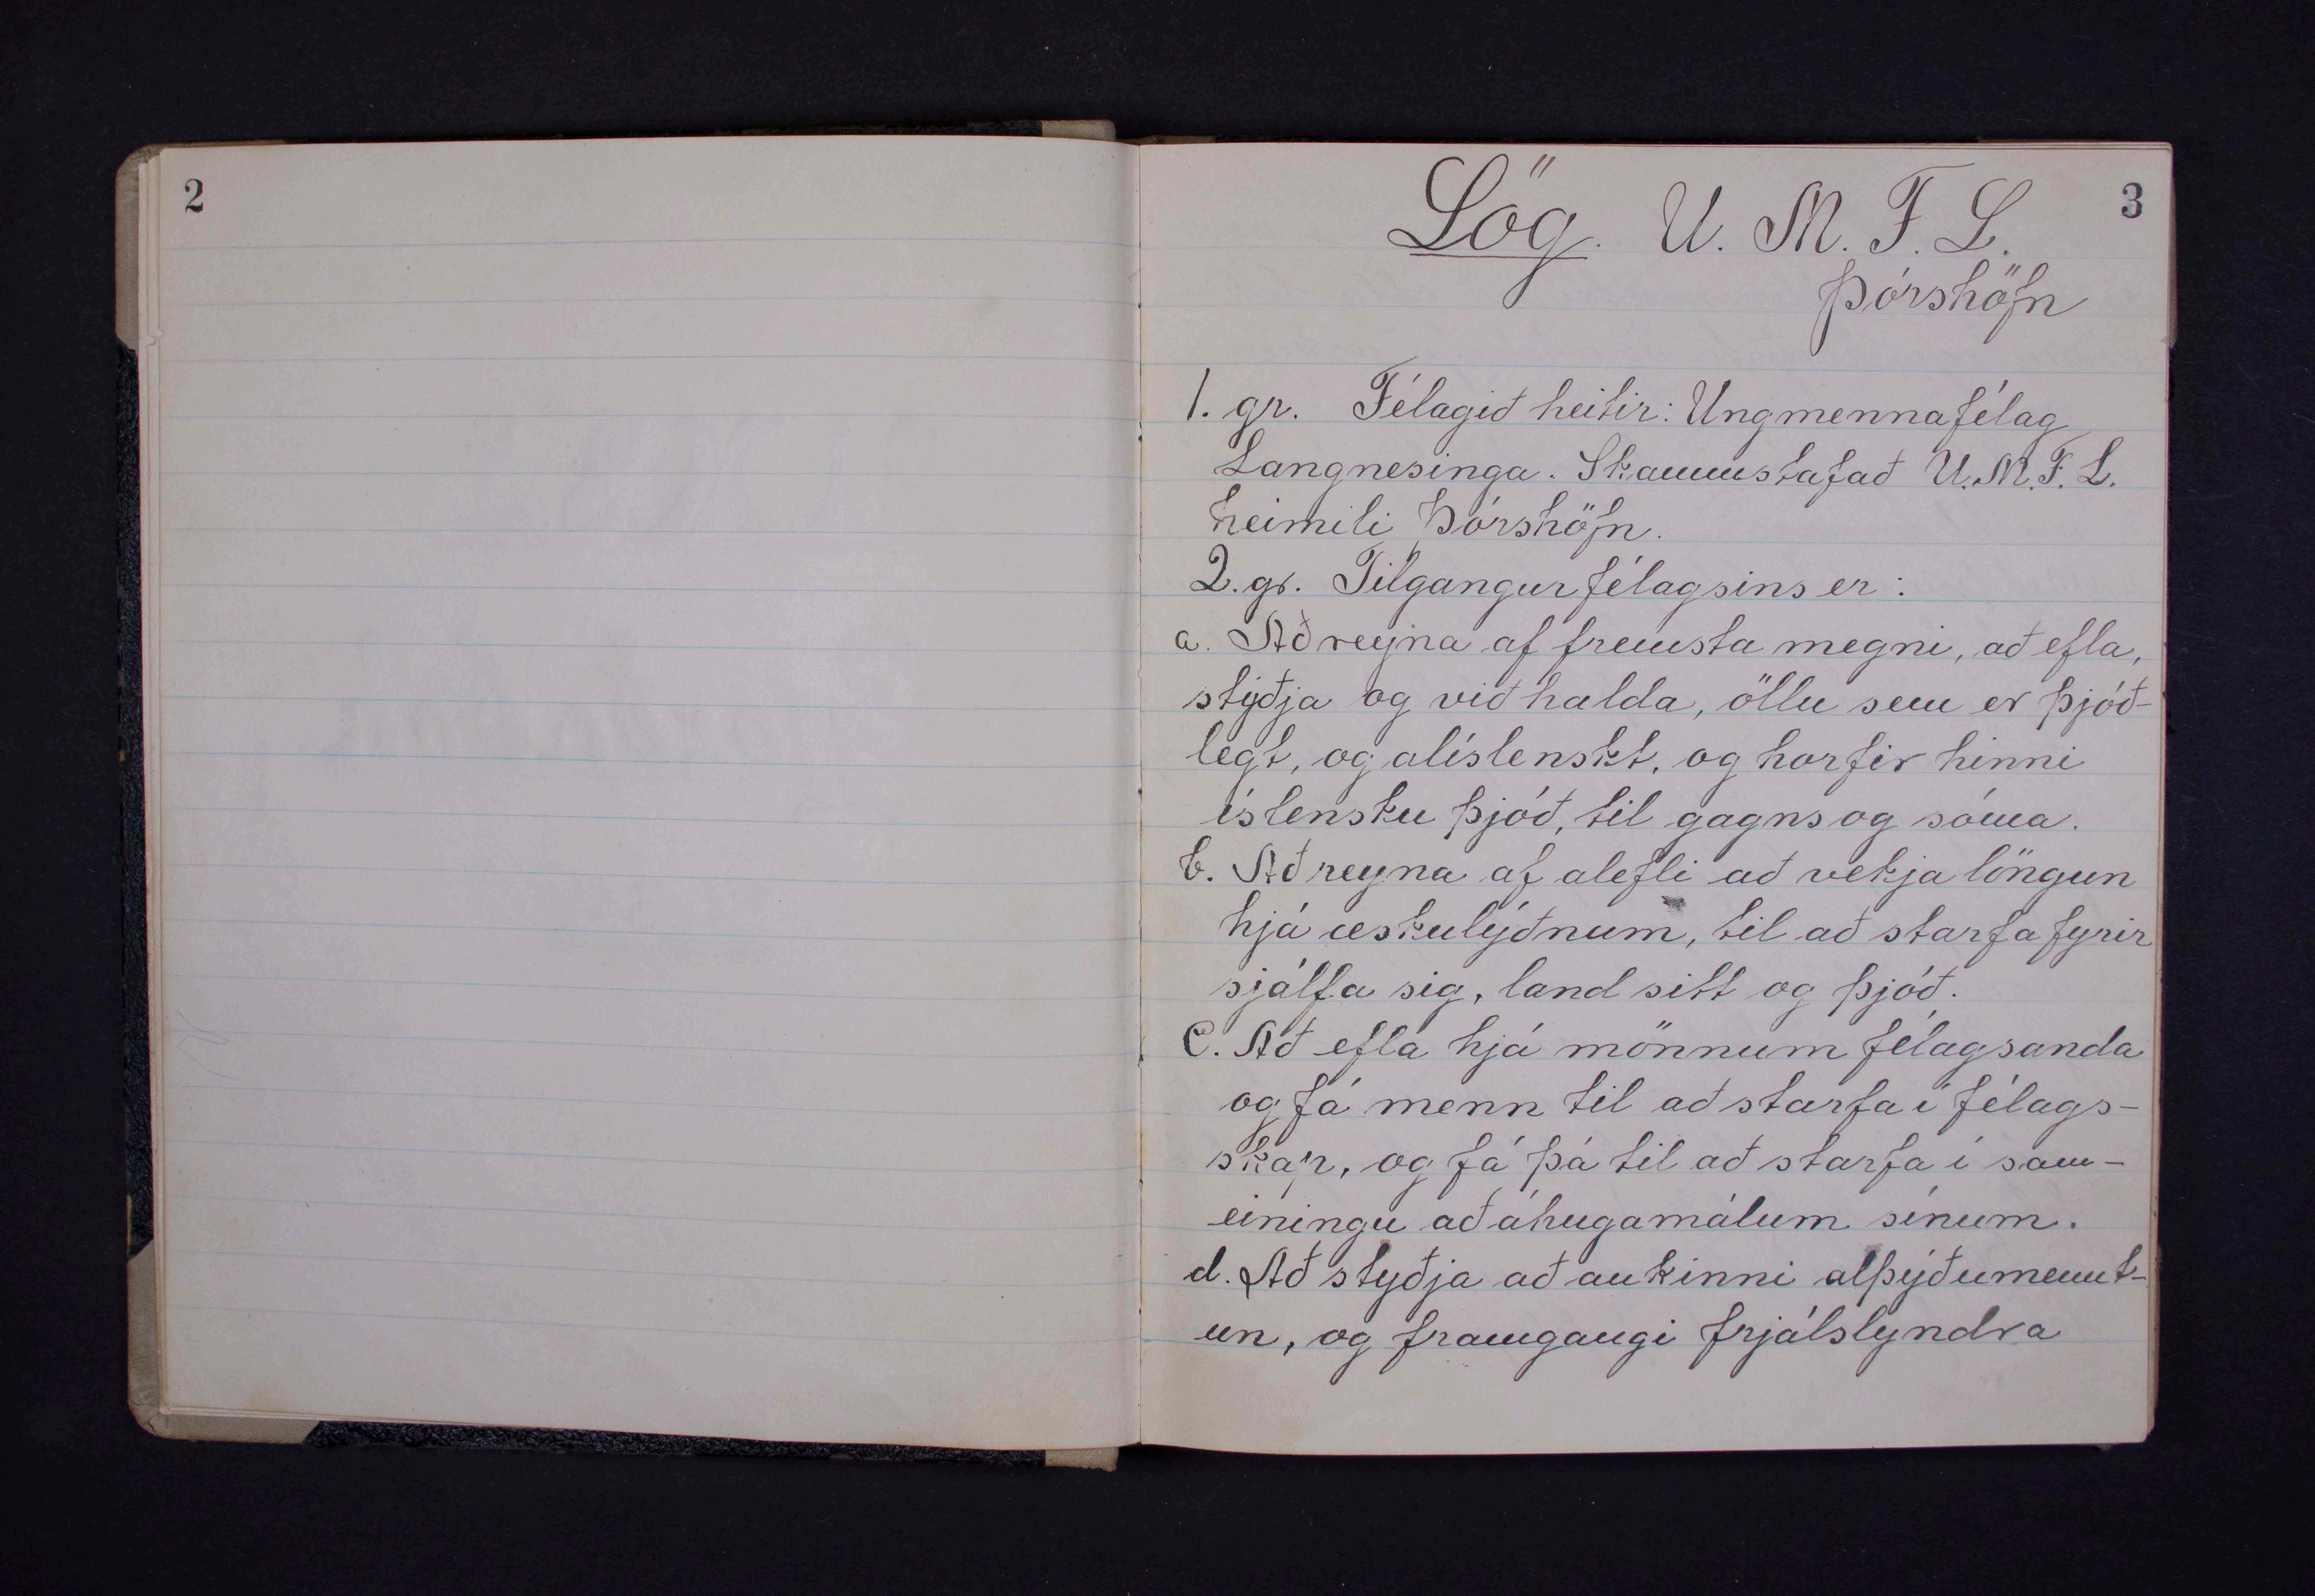 2
3
Lög. U. M. F. L.
Þórshöfn
1. gr. Félagið heitir: Ungmennafélag
Langnesinga. Skammstafað U.M.F.L.
heimili Þórshöfn.
2. gr. Tilgangur félagsins er:
a. Að reyna af fremsta megni, að efla,
styðja og við halda, öllu sem er þjóð-
legt, og alíslenskt, og horfir hinni
íslensku þjóð, til gagns og sóma.
b. Að reyna af alefli að vekja löngun
hjá æskulýðnum, til að starfa fyrir
sjálfa sig, land sitt og þjóð.
C. Að efla hjá mönnum félagsanda
og fá menn til að starfa í félags-
skap, og fá þá til að starfa í sam-
einingu að áhugamálum sínum.
d. Að styðja að aukinni alþýðumennt-
un, og framgangi frjálslyndra